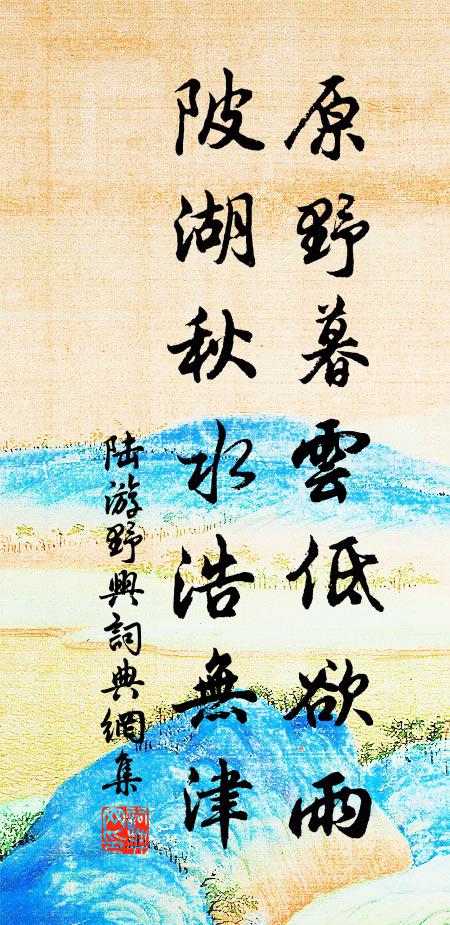 原野暮雲低欲雨
陂湖秋水浩無津
陸游野興詞典網集